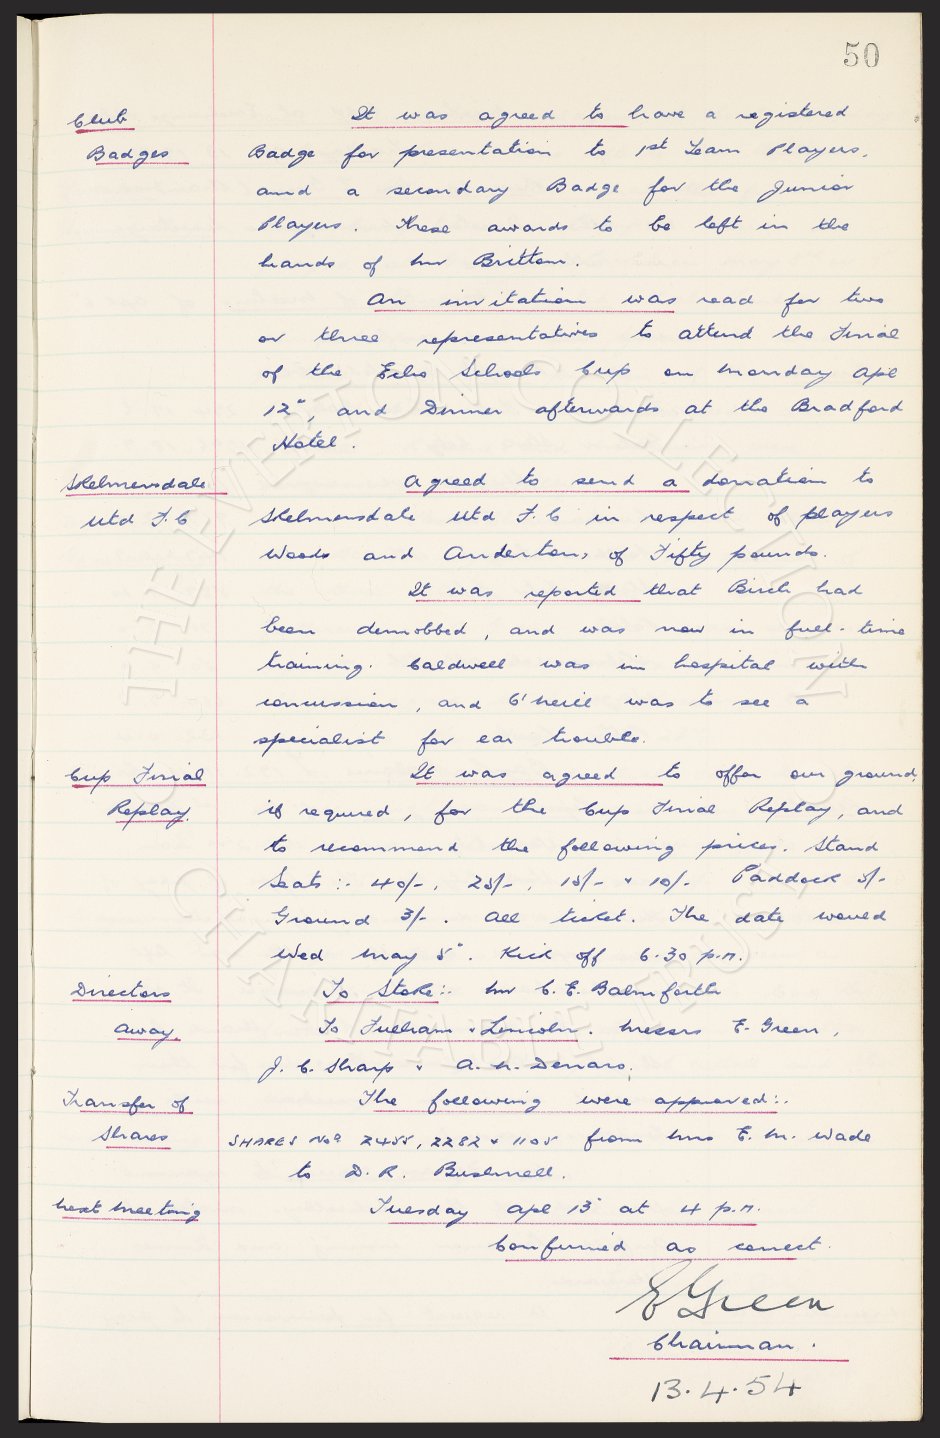 50
Club It was agreed to have a registered
Badges Badge for presentation to 1st Team Players,
and a secondary Badge for the Junior
Players. These awards to be left in the
hands of Mr Britton.
An invitation was read for two
or three representatives to attend the Final
of the Echo Schools Cup on Monday Apl
12", and Dinner afterwards at the Bradford
Hotel.
Skelmersdale Agreed to send a donation to
Utd F.C Skelmersdale Utd F.C in respect of players
Woods and Anderton, of Fifty pounds.
It was reported that Birch had
been demobbed, and was now in full-time
training. Caldwell was in hospital with
concussion, and O'Neill was to see a
specialist for ear trouble.
Cup Final It was agreed to offer our ground,
Replay. if required, for the Cup Final Replay, and
to recommend the following prices. Stand
Seats :- 40/-, 25/-, 15/- & 10/- Paddock 5/-
Ground 3/-. All ticket. The date would
Wed May 5". Kick off 6.30 p.m.
Directors To Stoke:- Mr C.E. Balmforth
Away. To Fulham & Lincoln. Messrs E. Green,
J.C. Sharp & A.W. Denaro.
Transfer of The following were approved:-
Shares SHARES Nos 2455, 2282 & 1105 from Mrs E.M. Wade
to D.R. Bushnell.
Next Meeting Tuesday Apl 13" at 4 p.m.
Confirmed as correct.
E Green
Chairman.
13.4.54
THE EVERTON COLLECTION
CHARITABLE TRUST